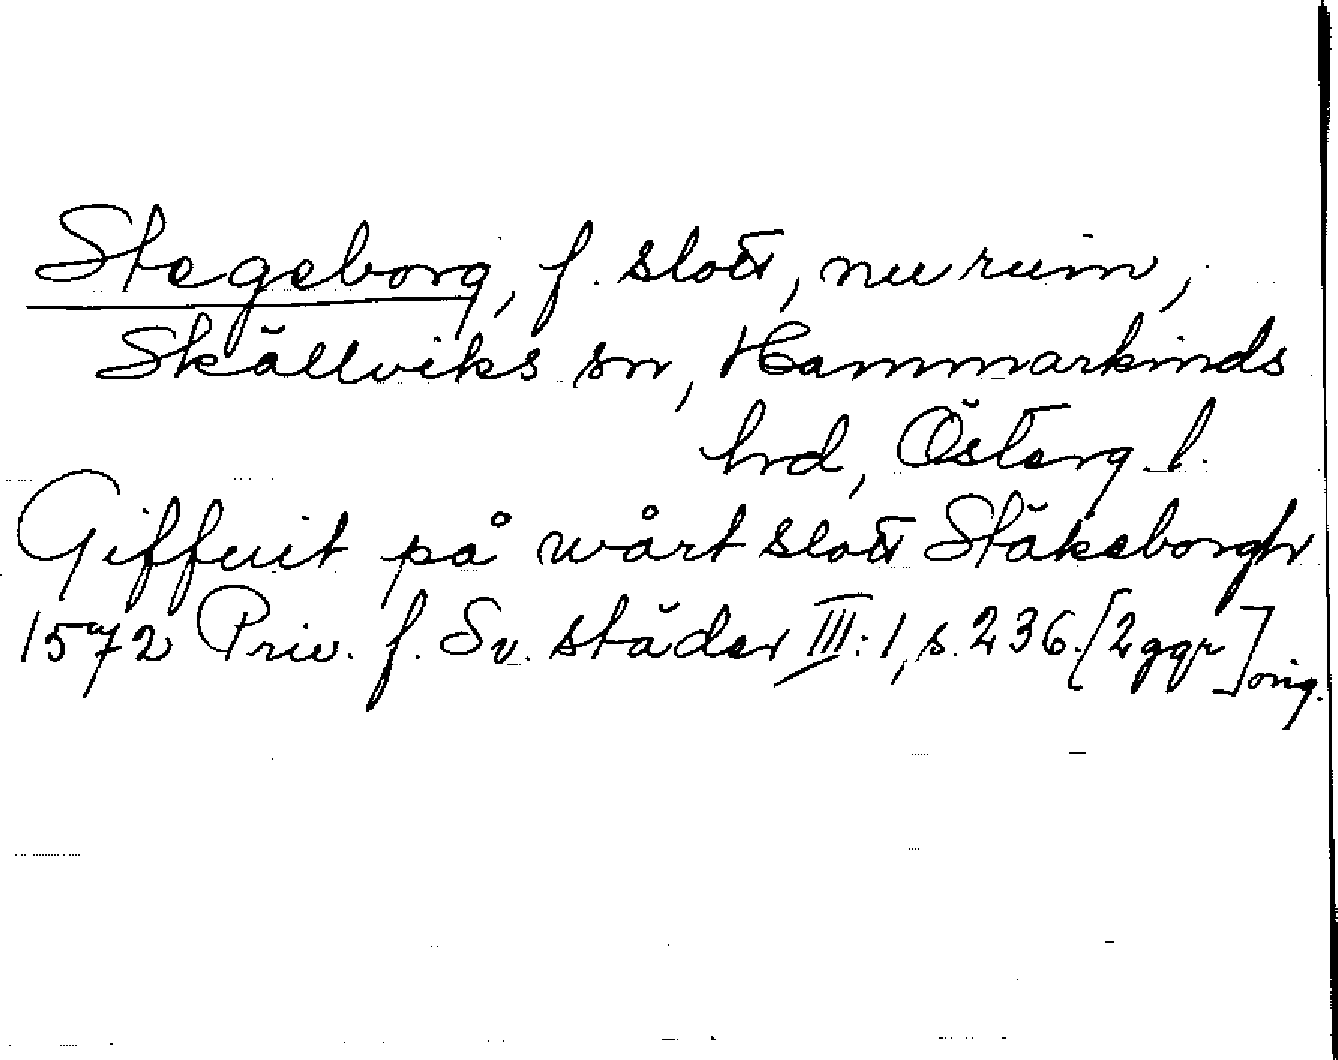 Stegeborg, f. slott, nu ruin,
Skällviks sn, Hammarkinds
hrd, Österg. l.
Giffuit på wårt slott Stäkeborgh
1572 Priv. f. Sv. städer III:1, s. 236. [2 ggr] orig.